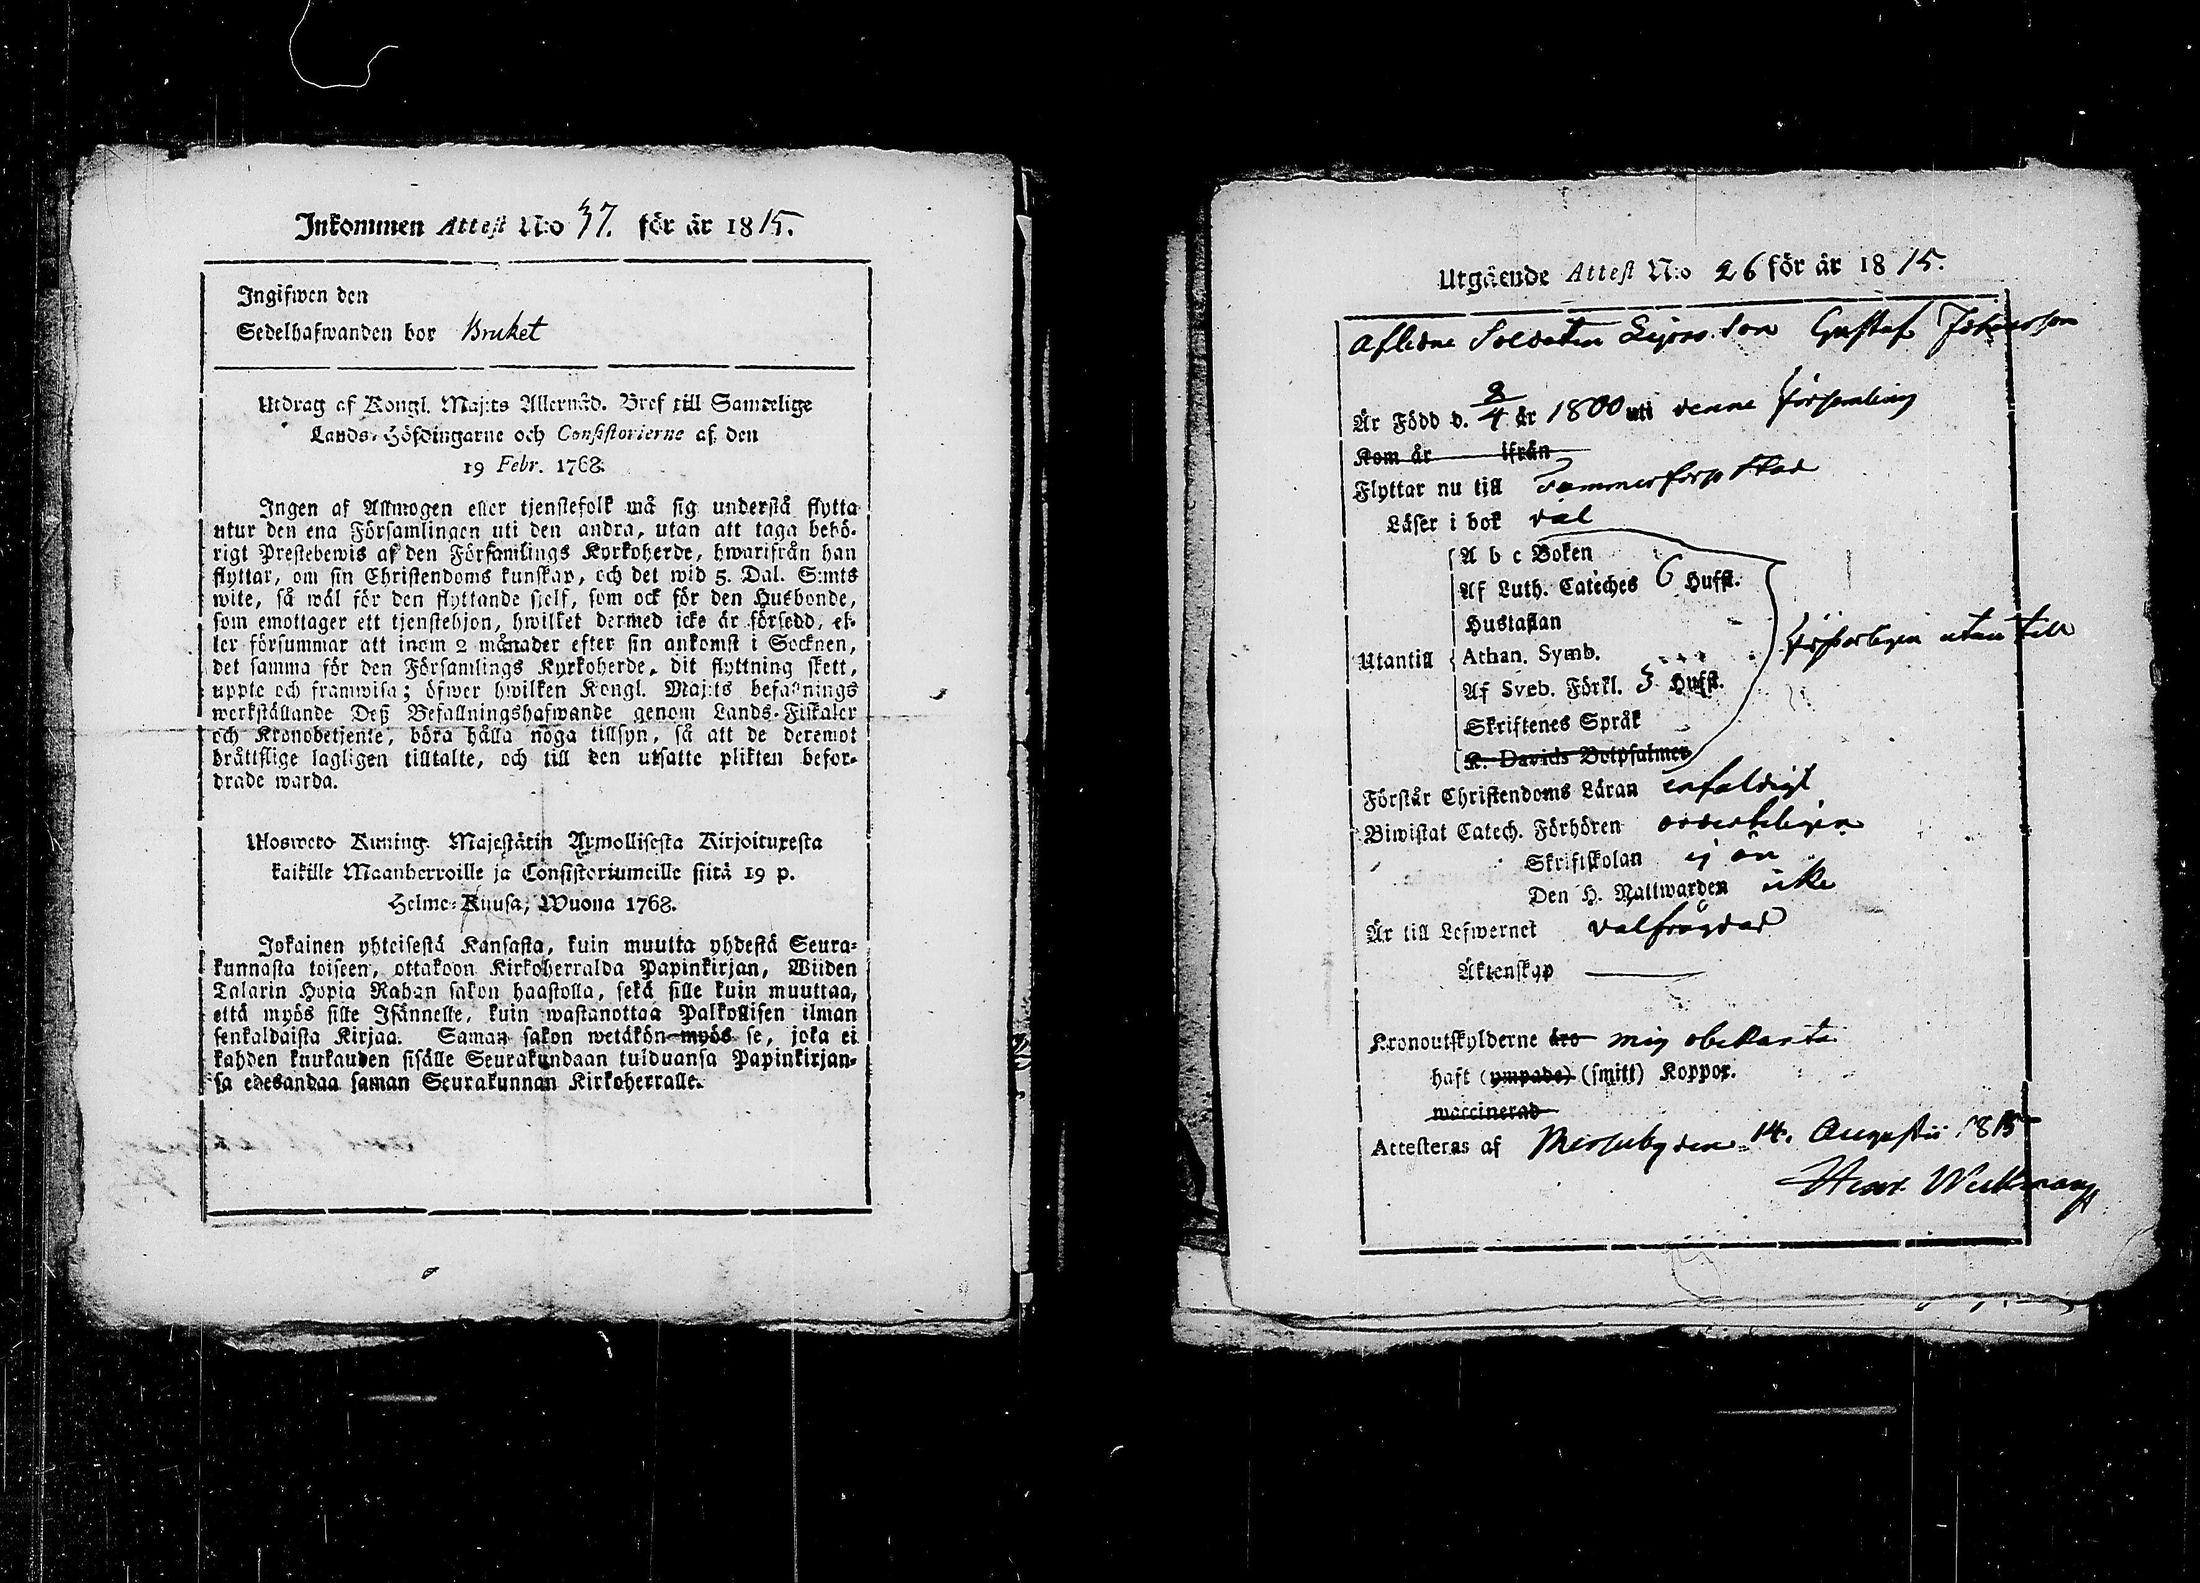 Inkommen Attest N:o 37. för år 1815.
Ingifwen den
Sedelhafwanden bor Bruket
Utdrag af Kongl. Maj:ts Allernåd. Bref till Samtelige
Lands-Höfdingarne och Consistorierne af den
19 Febr. 1768.
Ingen af Allmogen eller tjenstefolk må sig understå flytta
utur den ena Församlingen uti den andra, utan att taga behö-
rigt Prestebewis af den Församlings Kyrkoherde, hwarifrån han
flyttar, om sin Christendoms kunskap, och det wid 5. Dal. S:mts
wite, så wäl för den flyttande sjelf, som ock för den Husbonde,
som emottager ett tjenstehjon, hwilket dermed icke är försedd, el-
ler försummar att inom 2 månader efter sin ankomst i Socknen,
det samma för den Församlings Kyrkoherde, dit flyttning skett,
uppte och framwisa; öfwer hwilken Kongl. Maj:ts befallnings
werkställande Deß Befallningshafwande genom Lands-Fiskaler
och Kronobetjente, böra hålla noga tillsyn, så att de deremot
bråttslige lagligen tilltalte, och till den utsatte plikten befor-
drade warda.
Ulosweto Kuning. Majestätin Armollisesta Kirjoituxesta
kaikille Maanherroille ja Consistoriumeille siitä 19 p.
Helme-Kuusa, Wuona 1768.
Jokainen yhteisestä Kansasta, kuin muutta yhdestä Seura-
kunnasta toiseen, ottakoon Kirkoherralda Papinkirjan, Wiiden
Talarin Hopia Rahan sakon haastolla, sekä sille kuin muuttaa,
että myös sille Isännelle, kuin wastanottaa Palkollisen ilman
senkaldaista Kirjaa. Saman sakon wetäkön myös se, joka ei
kahden kuukauden sisälle Seurakundaan tulduansa Papinkirjan-
sa edesandaa saman Seurakunnan Kirkoherralle.
Utgående Attest N:o 26 för år 1815.
Aflidne Soldaten son Gustaf Johansson
Är Född d. 2/4 år 1800 uti denne församling
Kom år ifrån
Flyttar nu till Tammerfors stad
Läser i bok väl
A b c Boken
Af Luth. Cateches 6 Hufst.
Hustaflan
Utantill Athan. Symb.
försvarligen utan till
Af Sveb. Förkl. 3 Hufst.
Skriftenes Språk
K. Davids Botpsalmer
Förstår Christendoms Läran enfaldigt
Biwistat Catech. Förhören ordenteligen
Skriftskolan ej än
Den H. Nattwarden icke
Är till Lefwernet välfrägdad
Äktenskap
Kronoutskylderne äro mig obekanta
haft (ympade) (smitt) Koppor.
waccinerad
Attesteras af Messuby den 14. Augusti 1815
Henr. Weckman